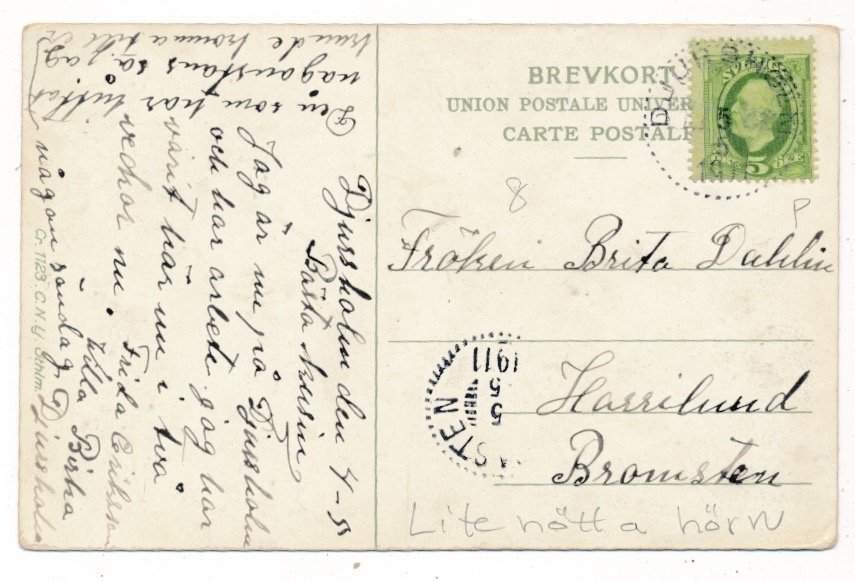 BREVKORT
UNION POSTALE UNIVER
CARTE POSTALE
SVERIGE
5 ÖRE
DJURSHOLM
1911
8
P
Fröken Brita Dahlin
Harrilund
Bromsten
STEN
5
5
1911
Lite nött a hörn
Djursholm den 4-5
Bästa kusin
Jag är nu på Djursholm
och har arbete jag har
varit här nu i två
veckor nu. Frida
Villa Birka
Djursholm
Den som har hittat
någonstans så jag
kunde komma till er
någon söndag
Cr. 1123. C. N:s Lj. Sthlm.